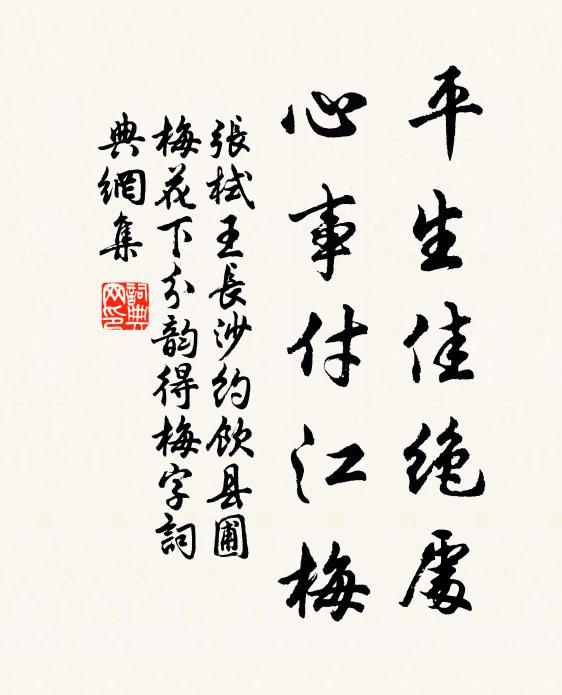 平生佳絶處
心事付江梅
張栻王長沙約飲县圃
梅花下分韵得梅字詞
典網集
詞典網印